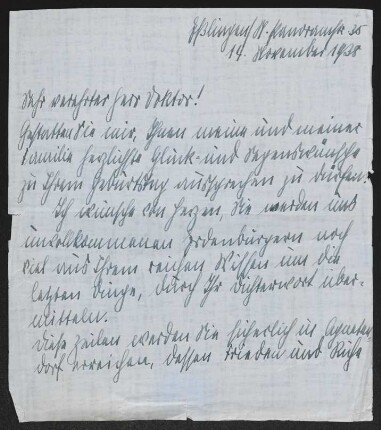 Eßlingen/N. Kandlerstr. 35
14. November 1938
Sehr verehrter Herr Doktor!
Gestatten Sie mir, Ihnen meine und meiner
Familie herzlichste Glück- und Segenswünsche
zu Ihrem Geburtstag aussprechen zu dürfen.
Ich wünsche von Herzen, Sie werden uns
unvollkommenen Erdenbürgern noch
viel aus Ihrem reichen Wissen um die
letzten Dinge, durch Ihr Dichterwort über-
mitteln.
Diese Zeilen werden Sie sicherlich in Agneten-
dorf erreichen, dessen Frieden und Ruhe